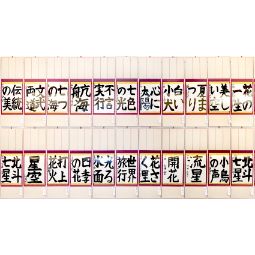 花の一生
美しい空
夏まつり
白い小犬
心に太陽
七色の光
不言実行
航海
七つの海
文武両道
伝統の美
北斗七星
小鳥の声
流星
開花
花さく里
世界旅行
光る水面
四季の花
打上花火
北斗七星